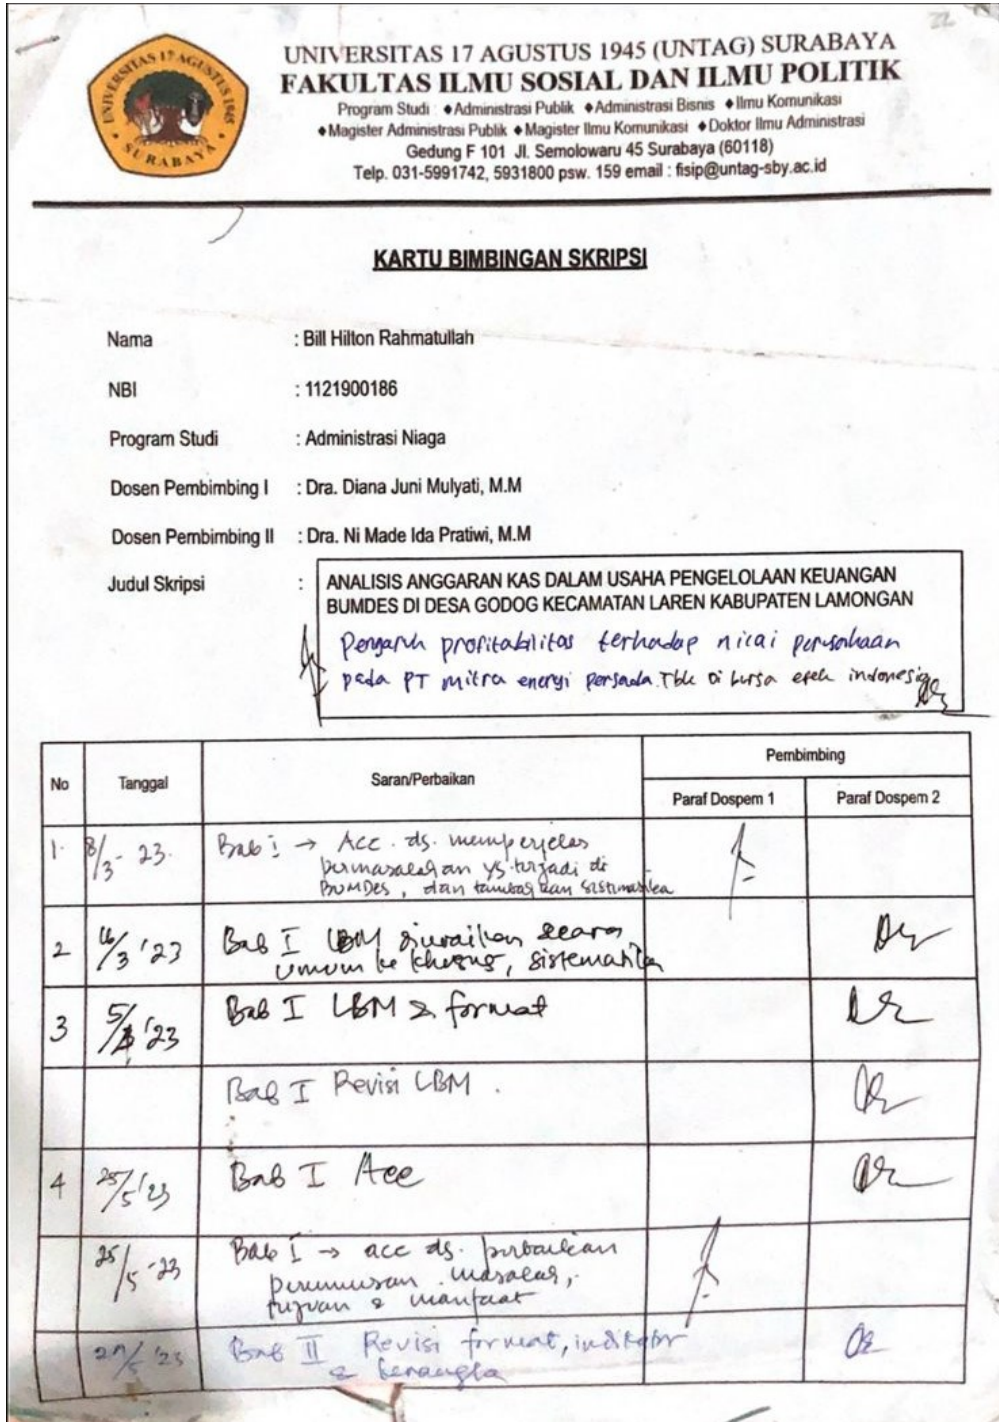 22
UNIVERSITAS 17 AGUSTUS 1945
SURABAYA
UNIVERSITAS 17 AGUSTUS 1945 (UNTAG) SURABAYA
FAKULTAS ILMU SOSIAL DAN ILMU POLITIK
Program Studi : ◆Administrasi Publik ◆Administrasi Bisnis ◆Ilmu Komunikasi
◆Magister Administrasi Publik ◆Magister Ilmu Komunikasi ◆Doktor Ilmu Administrasi
Gedung F 101 Jl. Semolowaru 45 Surabaya (60118)
Telp. 031-5991742, 5931800 psw. 159 email : fisip@untag-sby.ac.id
KARTU BIMBINGAN SKRIPSI
Nama : Bill Hilton Rahmatullah
NBI : 1121900186
Program Studi : Administrasi Niaga
Dosen Pembimbing I : Dra. Diana Juni Mulyati, M.M
Dosen Pembimbing II : Dra. Ni Made Ida Pratiwi, M.M
Judul Skripsi : ANALISIS ANGGARAN KAS DALAM USAHA PENGELOLAAN KEUANGAN
BUMDES DI DESA GODOG KECAMATAN LAREN KABUPATEN LAMONGAN
Pengaruh profitabilitas terhadap nilai perusahaan
pada PT mitra energi persada.Tbk Di bursa efek indonesia
No Tanggal Saran/Perbaikan Pembimbing
Paraf Dospem 1 Paraf Dospem 2
1. 8/3 - 23. Bab I → Acc. dg. memperjelas
permasalahan yg. terjadi di
BUMDes, dan tambahkan sistimatika
2 16/3 '23 Bab I LBM diuraikan secara
umum ke khusus, sistematika
3 5/ '23 Bab I LBM & format
Bab I Revisi LBM.
4 25/5 '23 Bab I Acc
25/5 - 23 Bab I → acc dg. perbaikan
perumusan masalah,
tujuan & manfaat
29/5 '23 Bab II Revisi format, indikator
& kerangka